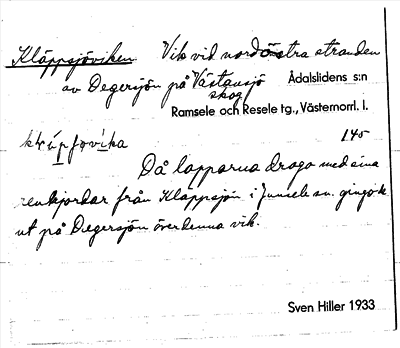 Kläppsjöviken Vik vid nordöstra stranden
av Degersjön på Västansjö Ådalslidens s:n
skog
Ramsele och Resele tg., Västernorrl. l.
145
Då lapparna drogo med sina
renhjordar från Kläppsjön i Junsele sn. gingo de
ut på Degersjön över denna vik.
Sven Hiller 1933